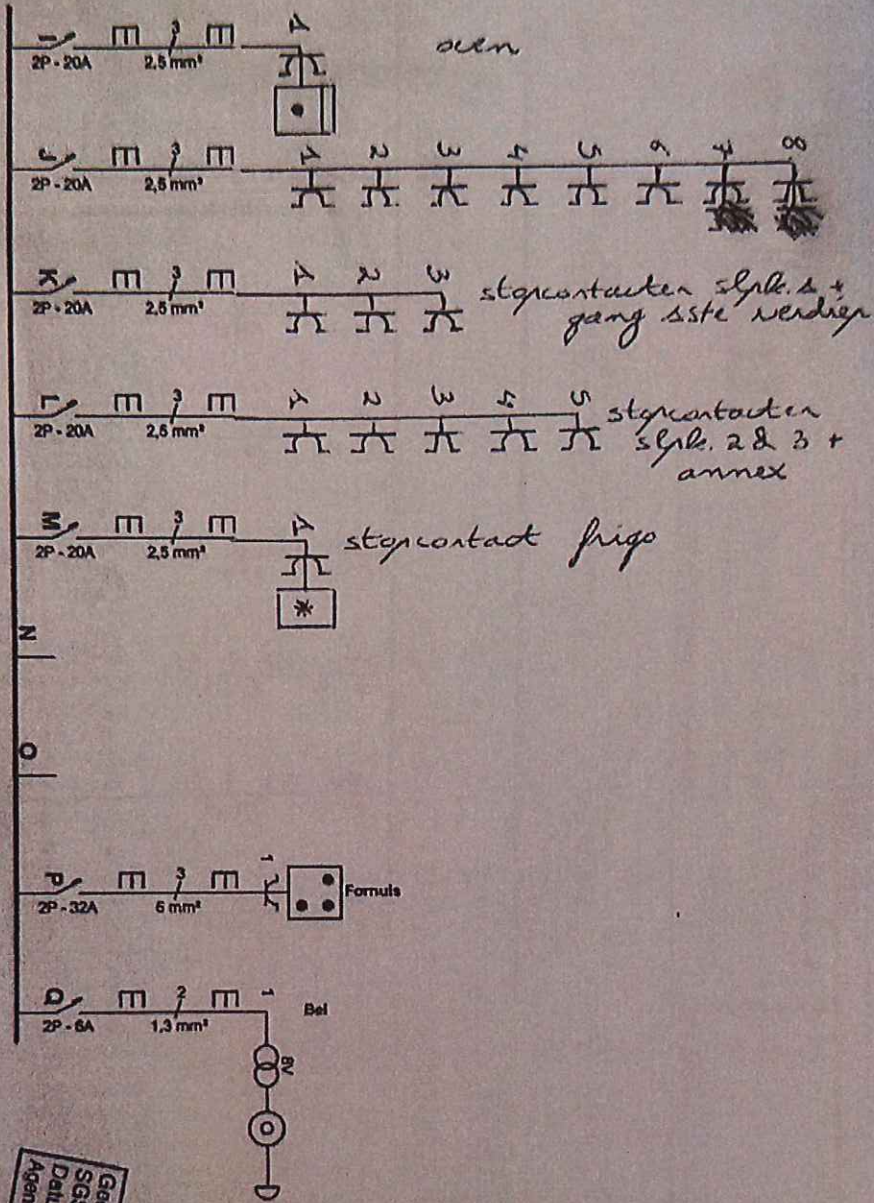 I
2P - 20A
3
2,5 mm²
1
oven
J
2P - 20A
3
2,5 mm²
1 2 3 4 5 6 7 8
K
2P - 20A
3
2,5 mm²
1 2 3
stopcontacten slpk. 1 +
gang 1ste verdiep
L
2P - 20A
3
2,5 mm²
1 2 3 4 5
stopcontacten
slpk. 2 & 3 +
annex
M
2P - 20A
3
2,5 mm²
1
stopcontact frigo
N
O
P
2P - 32A
3
6 mm²
1
Fornuis
Q
2P - 6A
2
1,3 mm²
1
Bel
8V
SGS
Agen